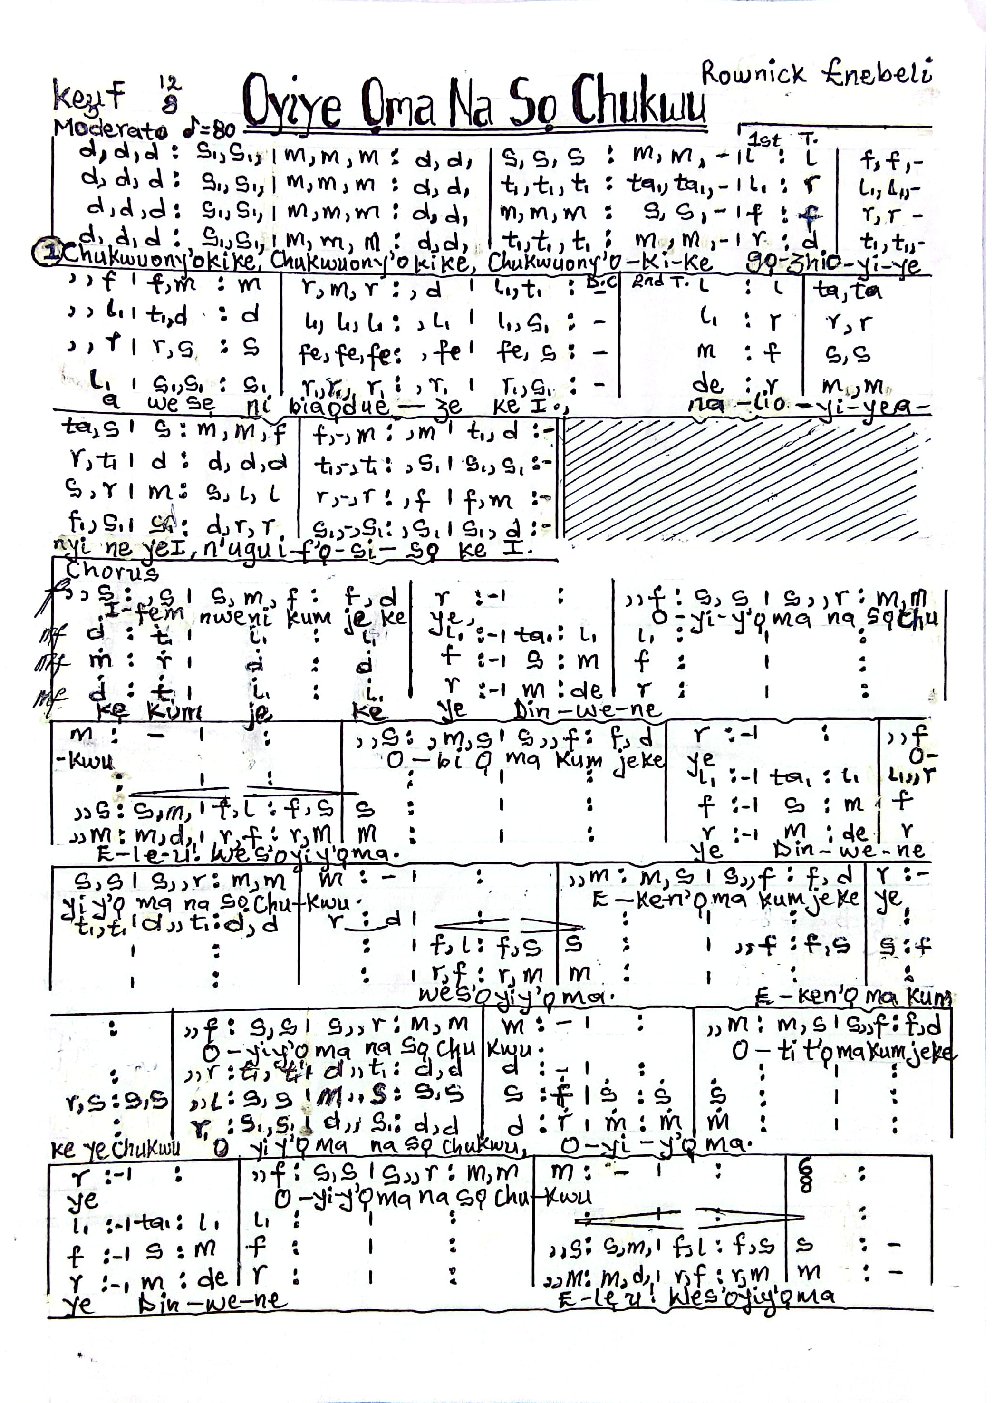 Rownick Enebeli
Key F 12/8 Oyiye Ọma Na Sọ Chukwu
Moderato ♪=80
1st T.
d, d, d : s₁, s₁, | m, m, m : d, d, | s, s, s : m, m, - | l : l | f, f, -
d, d, d : s₁, s₁, | m, m, m : d, d, | t₁, t₁, t₁ : ta₁, ta₁, - | l₁ : r | l₁, l₁, -
d, d, d : s₁, s₁, | m, m, m : d, d, | m, m, m : s, s, - | f : f | r, r -
d, d, d : s₁, s₁, | m, m, m : d, d, | t₁, t₁, t₁ : m, m, - | r : d | t₁, t₁, -
1 Chukwuony'okike, Chukwuony'okike, Chukwuony'o-ki-ke gọ-zhio-yi-ye
,, f | f, m : m | r, m, r : , d | l₁, t₁ : D.C | 2nd T. l : l | ta, ta
,, l₁ | t₁, d : d | l₁, l₁, l₁ : , l₁ | l₁, s₁ : - | l₁ : r | r, r
,, r | r, s : s | fe, fe, fe : , fe | fe, s : - | m : f | s, s
l₁ | s₁, s₁ : s₁ | r₁, r₁, r₁ : , r₁ | r₁, s₁ : - | de : r | m, m
a wese ni biaodue — ze ke I., na-lio-yi-yea-
ta, s | s : m, m, f | f, -, m : , m | t₁, d : -
r, t₁ | d : d, d, d | t₁, -, t₁ : , s₁ | s₁, s₁ : -
s, r | m : s, l, l | r, -, r : , f | f, m : -
f₁, s₁ | : d, r, r | s₁, -, s₁ : , s₁ | s₁, d : -
nyi ne yeI, n'ugu i-f'ọ-si-sọ ke I.
Chorus
f ,, s : , s | s, m, f : f, d | r : - | : | ,, f : s, s | s,, r : m, m
I-fem nweni kum je ke ye, O-yi-y'ọma na sọchu
mf d : t | l : l | l₁ : - | ta₁ : l₁ | l₁ : | :
mf m : r | d : d | f : - | s : m | f : | :
mf d : t | l : l | r : - | m : de | r : | :
ke kum je ke ye Din-we-ne
m : - | : | ,, s : , m, s | s,, f : f, d | r : - | : | ,, f
-kwu O-bi ọma kum jeke ye O-
: | : | : | : | l₁ : - | ta₁ : l₁ | l₁,, r
,, s : s, m, | f, l : f, s | s : | : | f : - | s : m | f
,, m : m, d, | r, f : r, m | m : | : | r : - | m : de | r
E-le-u! Wes'oyiy'ọma. ye Din-we-ne
s, s | s,, r : m, m | m : - | : | ,, m : m, s | s,, f : f, d | r : -
yiy'ọma na sọchu-kwu. E-ken'ọma kumjeke ye,
t₁, t₁ | d,, t₁ : d, d | r : d | : | : | : | :
| : | : | f, l : f, s | s : | ,, f : f, s | s : f
| : | : | r, f : r, m | m : | : | :
wes'oyiy'ọma. E-ken'ọma kum
: | ,, f : s, s | s,, r : m, m | m : - | : | ,, m : m, s | s,, f : f, d
O-yiy'ọma na sọchu kwu. O-tit'ọmakumjeke
: | ,, r : t₁, t₁ | d,, t₁ : d, d | d : - | : | : | :
r, s : s, s | ,, l : s, s | m,, s : s, s | s : f | s : s | s : | :
: | r₁ : s₁, s₁ | d,, s₁ : d, d | d : r | m : m | m : | :
ke yechukwu O yiy'ọma na sọchukwu, O-yi-y'ọma.
r : - | : | ,, f : s, s | s,, r : m, m | m : - | : | 6/8
ye O-yi-y'ọma na sọ chu-kwu
l₁ : - | ta₁ : l₁ | l₁ : | : | : | :
f : - | s : m | f : | : | ,, s : s, m, | f, l : f, s | s : -
r : - | m : de | r : | : | ,, m : m, d, | r, f : r, m | m : -
ye Din-we-ne E-leu! Wes'oyiy'ọma